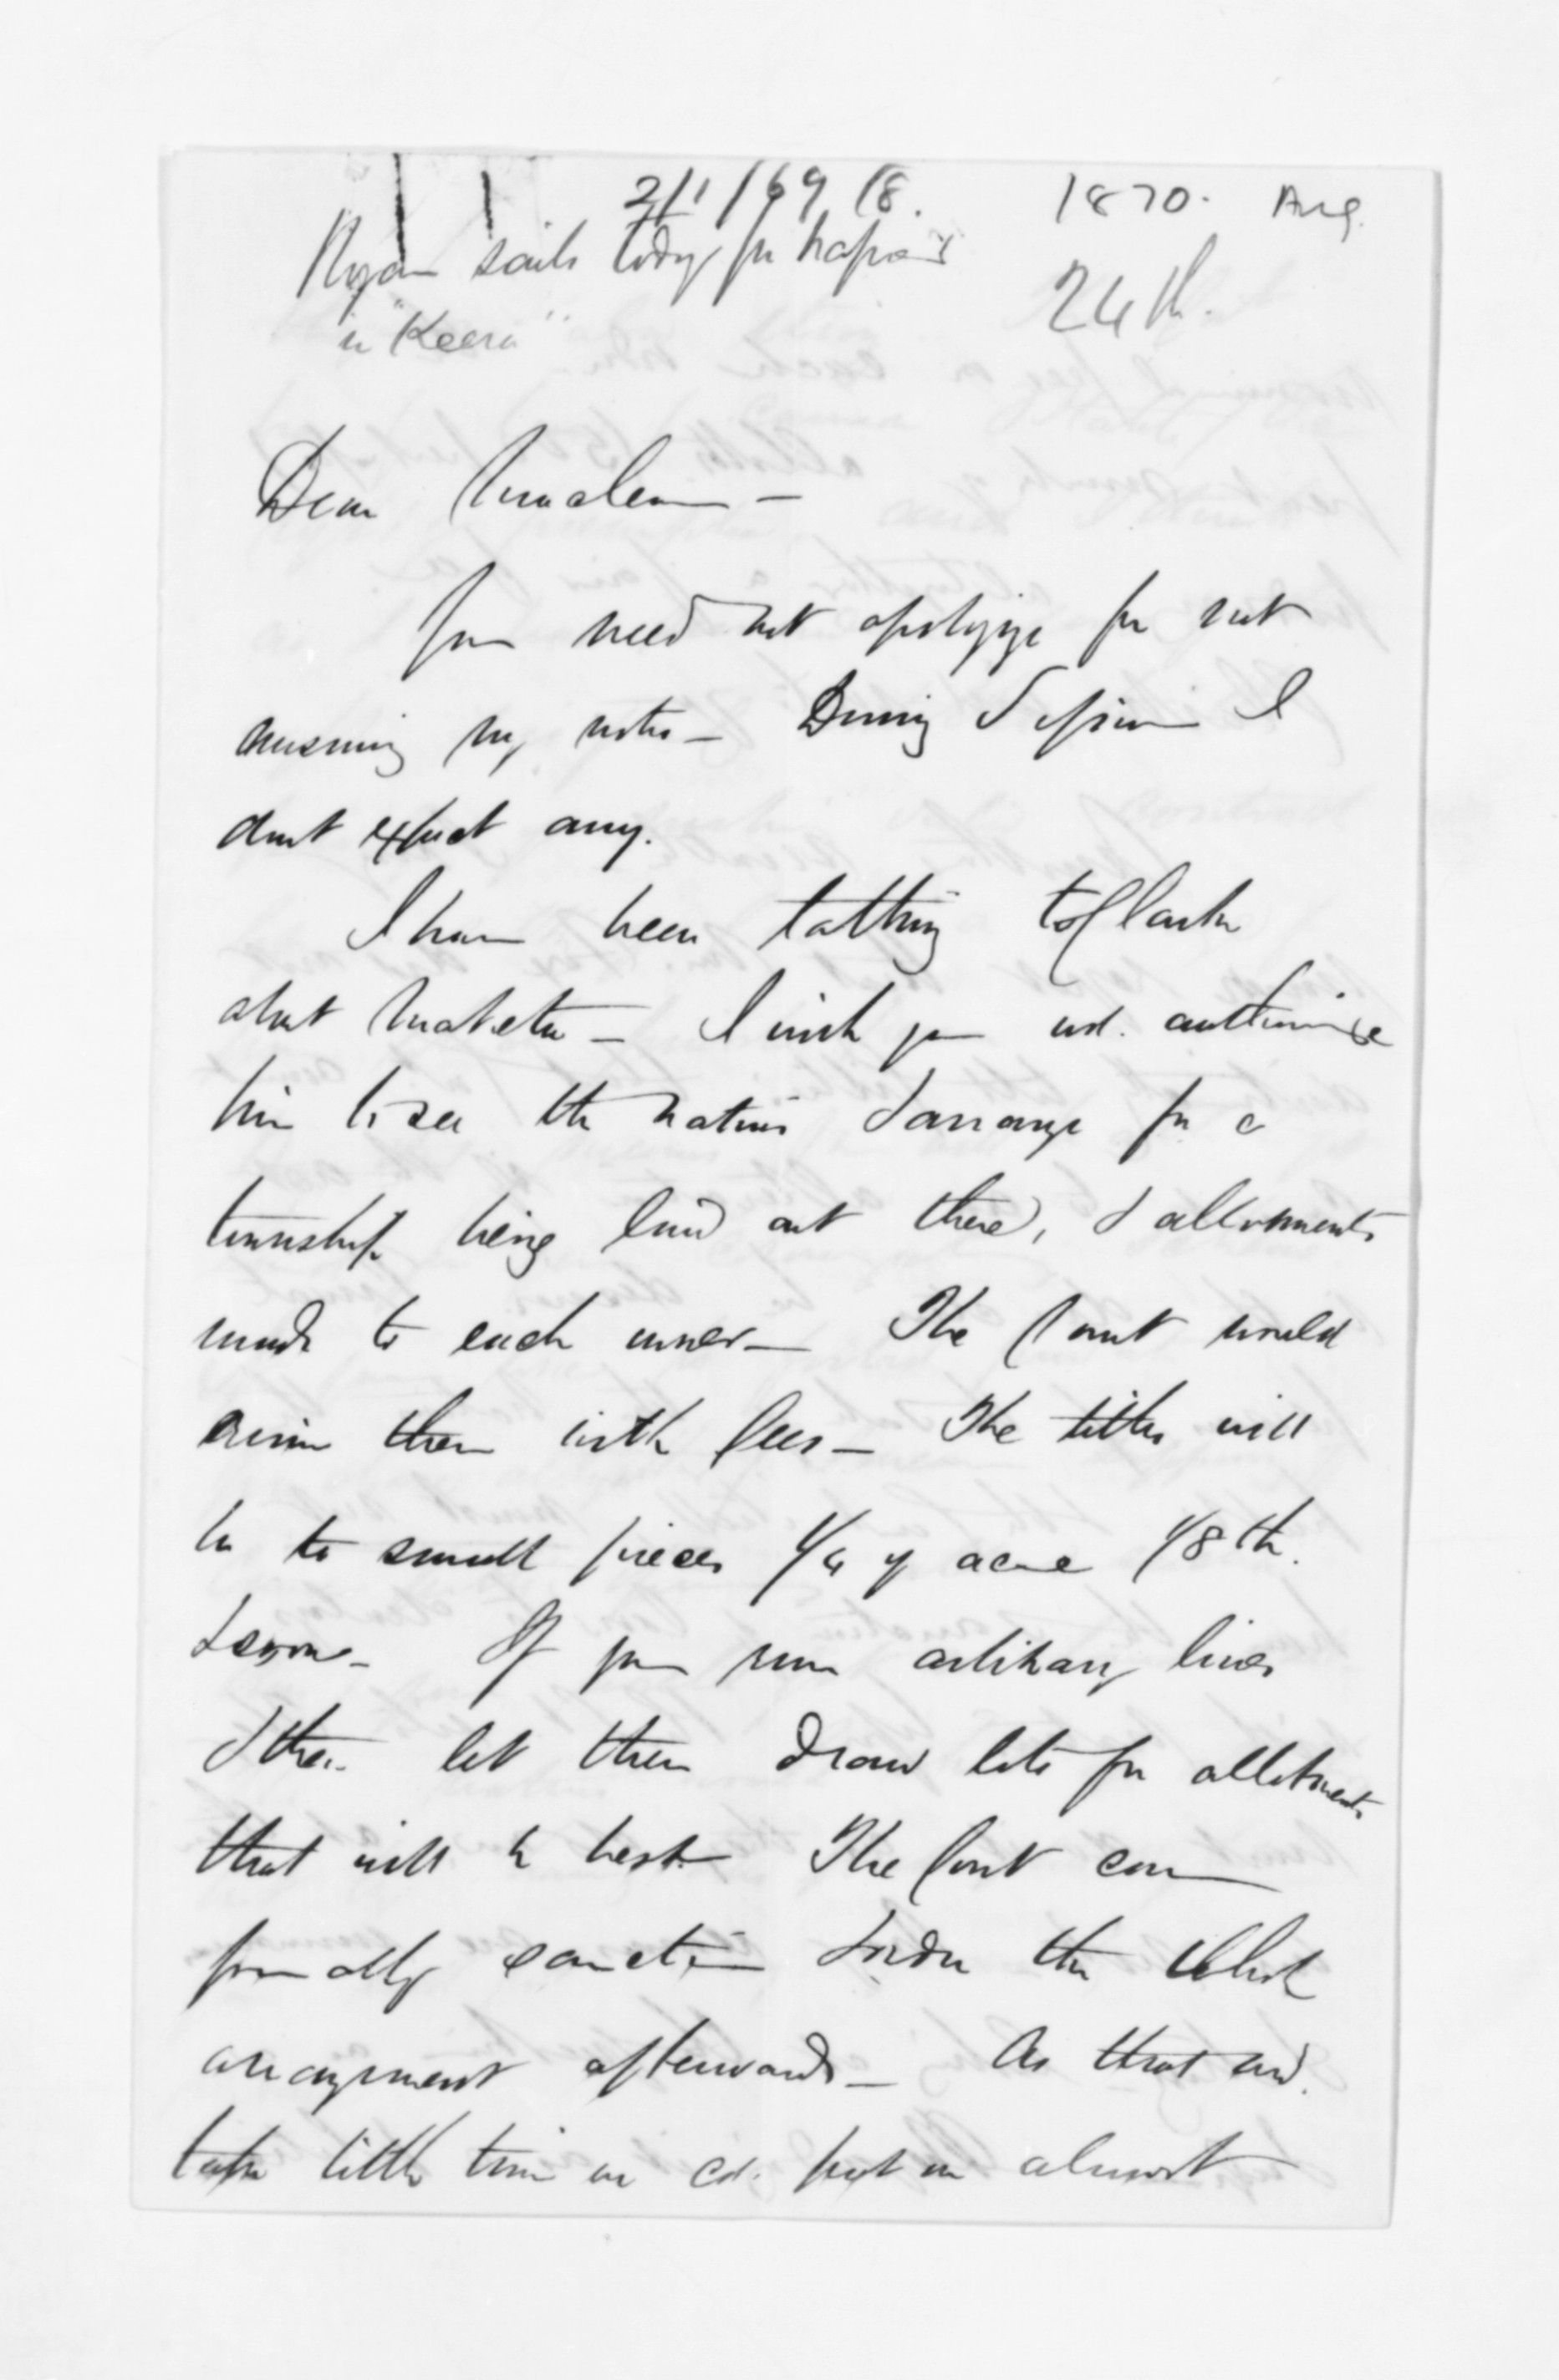 2/1/69 18. 1870. Aug.
Ryan sails today for Napier 24th.
in "Keera"
Dear Maclean —
You need not apologize for not
answering my notes — During Session I
dont expect any.
I have been talking to Clarke
about Maketu — I wish you wd. authorise
him to see the natives & arrange for a
township being laid out there, & allotments
made to each owner — The Court would
ruin them with fees — The titles will
be to small pieces 1/4 of acre 1/8th.
& so on — If you run arbitrary lines
& then let them draw lots for allotments
that will be best — The Court can
formally sanction & order the whole
arrangement afterwards — As that wd.
take little time we cd. put on almost